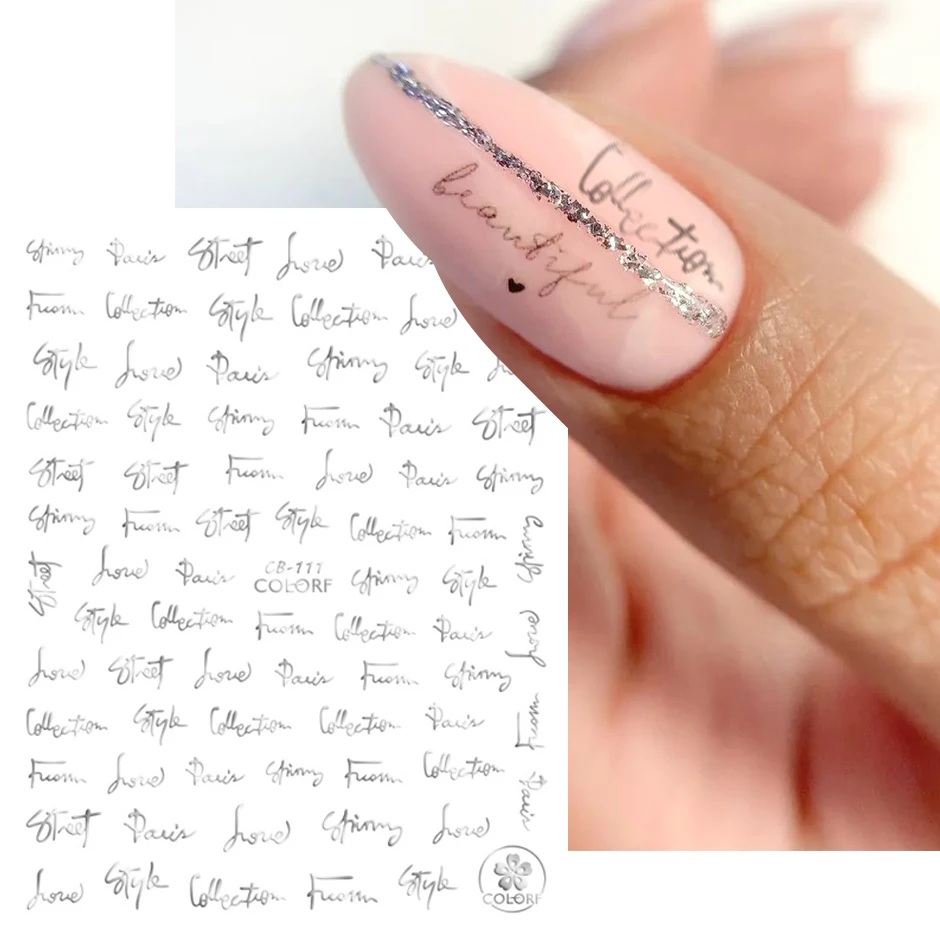 Collection
beautiful
Paris Street Love Paris
From Collection Style Collection Love
Style Love Paris Style
Collection Style From Paris Street
Street Street From Love Paris
From Street Style Collection From
Street Love Paris CB-111 Style
COLORF
Style Collection From Collection Paris Love
Love Street Love Paris From
Collection Style Collection Collection Paris From
From Love Paris From Collection Paris
Street Paris Love Love
Love Style Collection From Style
COLORF